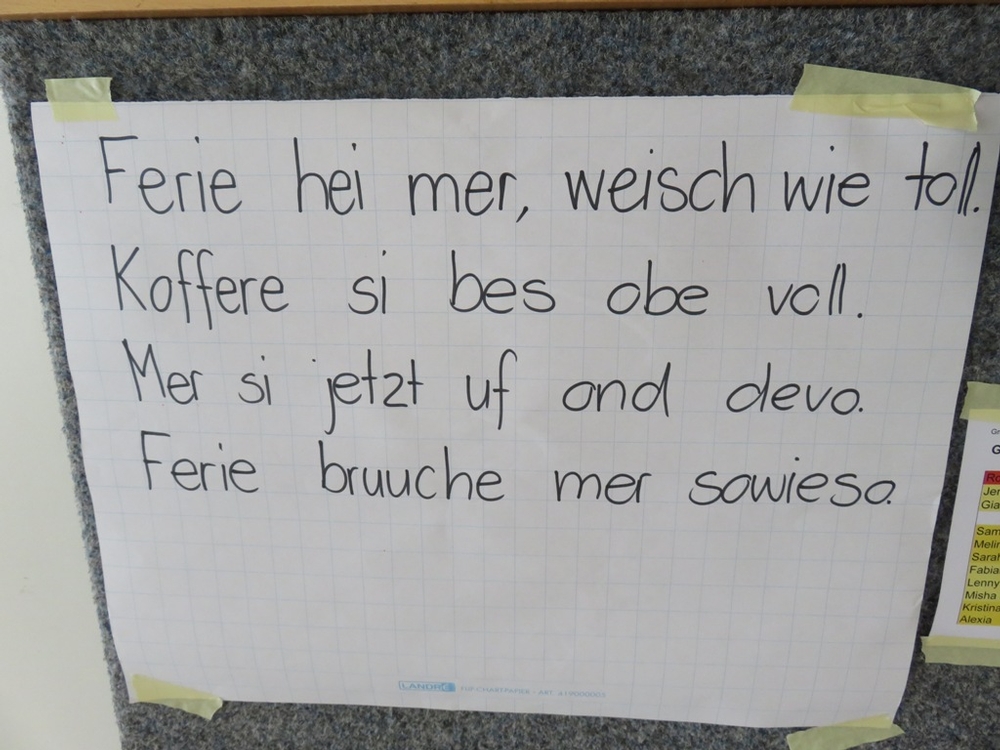 Ferie hei mer, weisch wie toll.
Koffere si bes obe voll.
Mer si jetzt uf ond devo.
Ferie bruuche mer sowieso.
LANDRÉ FLIP CHARTPAPIER - ART.
G
Jer
Gia
Sam
Melin
Sarah
Fabia
Lenny
Misha
Kristina
Alexia